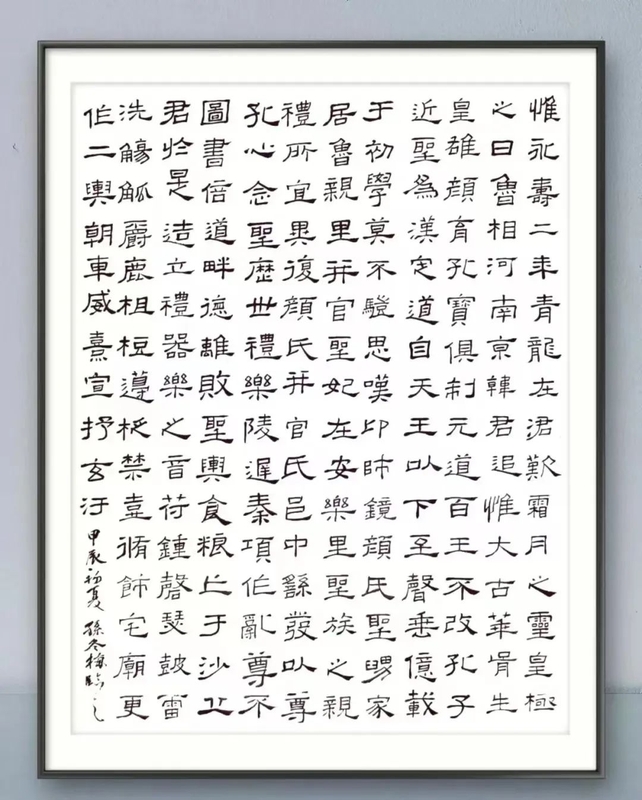 惟永壽二年青龍在涒歎霜月之靈皇極
之日魯相河南京韓君追惟大古華胥生
皇雄顏育孔寶俱制元道百王不改孔子
近聖為漢定道自天王以下至聲垂億載
于初學莫不驥思嘆卬師鏡顏氏聖舅家
居魯親里并官聖妃在安樂里聖族之親
禮所宜異復顏氏并官氏邑中繇發以尊
孔心念聖歷世禮樂陵遲秦項作亂尊不
圖書倍道畔德離敗聖輿食糧亡于沙丘
君於是造立禮器樂之音苻鍾磬瑟鼓雷
洗觴觚爵鹿柤梪籩柉禁壺脩飾宅廟更
作二輿朝車威熹宣抒玄汙
甲辰初夏 孫冬梅臨之